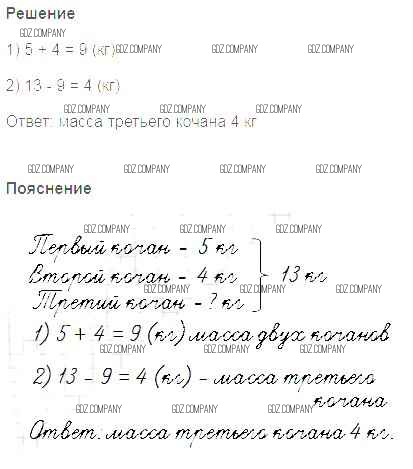 Решение
GDZ COMPANY
1) 5 + 4 = 9 (кг) GDZ COMPANY GDZ COMPANY GDZ COMPANY
2) 13 - 9 = 4 (кг)
GDZ COMPANY GDZ COMPANY GDZ COMPANY
Ответ: масса третьего кочана 4 кг
GDZ COMPANY GDZ COMPANY GDZ COMPANY GDZ COMPANY
Пояснение
GDZ COMPANY GDZ COMPANY GDZ COMPANY
Первый кочан - 5 кг
Второй кочан - 4 кг 13 кг
GDZ COMPANY GDZ COMPANY GDZ COMPANY
Третий кочан - ? кг
GDZ COMPANY GDZ COMPANY GDZ COMPANY
1) 5 + 4 = 9 (кг) масса двух кочанов
GDZ COMPANY GDZ COMPANY GDZ COMPANY
2) 13 - 9 = 4 (кг) - масса третьего
кочана
GDZ COMPANY GDZ COMPANY GDZ COMPANY
Ответ: масса третьего кочана 4 кг.
GDZ COMPANY GDZ COMPANY GDZ COMPANY